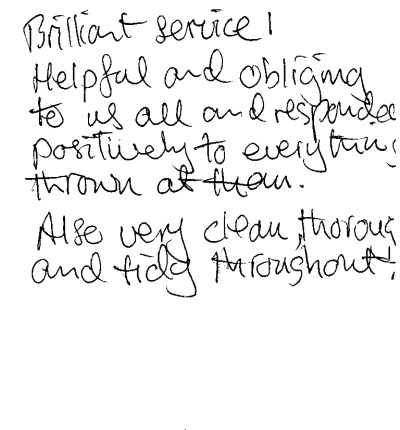 Brilliant service!
Helpful and obliging
to us all and responde
positively to everything
thrown at them.
Also very clean, thoroug
and tidy throughout!